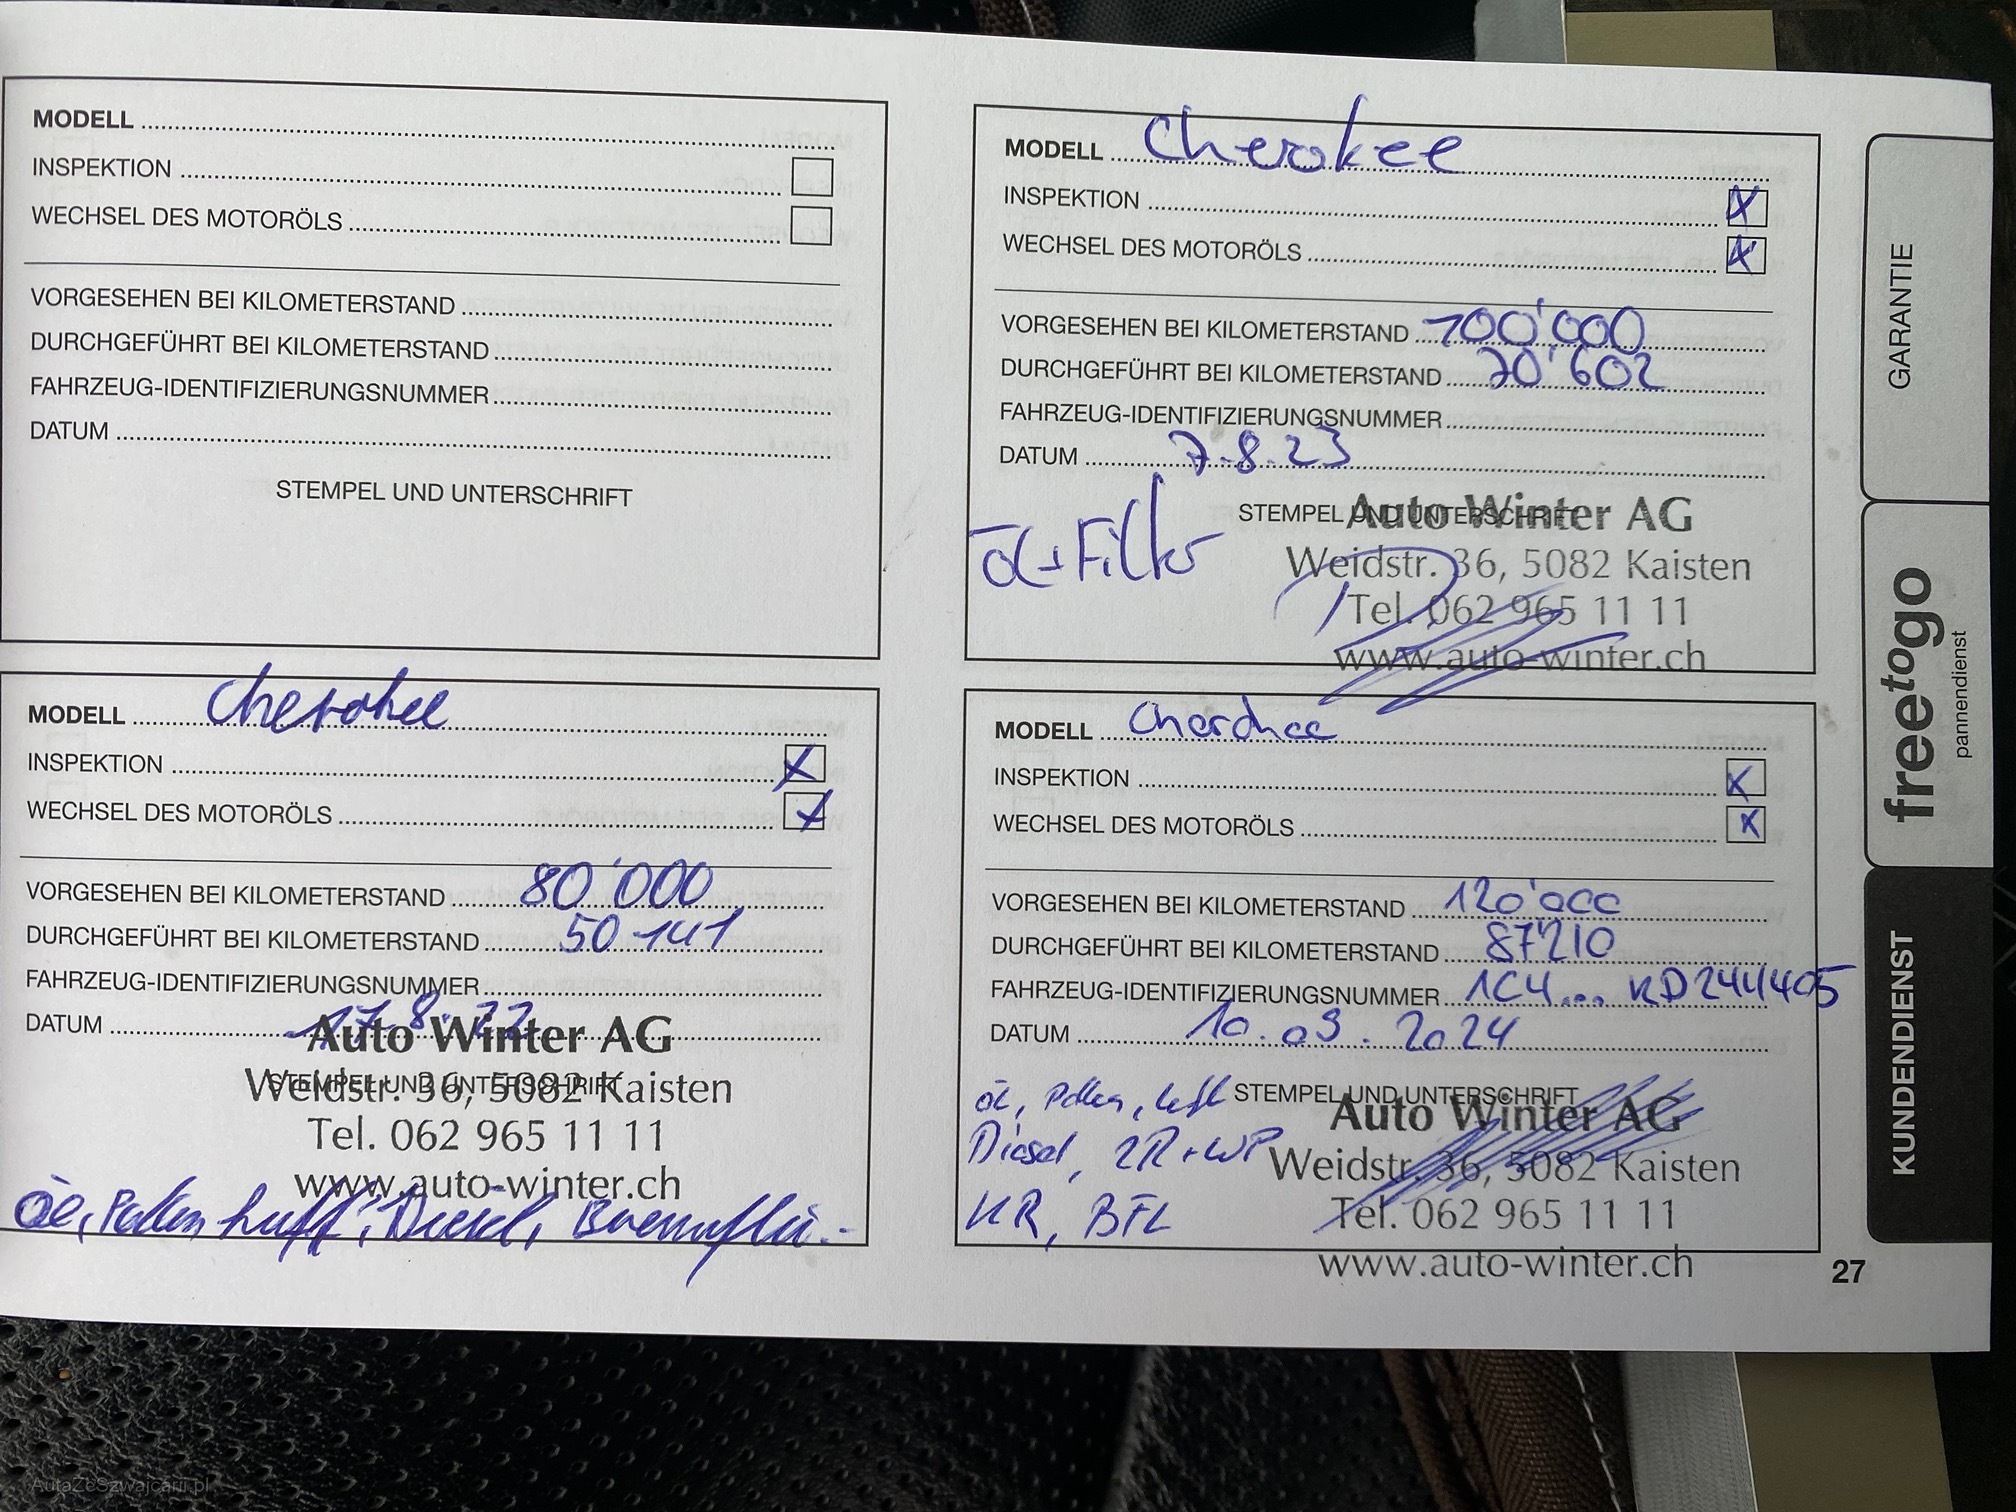 MODELL
INSPEKTION
WECHSEL DES MOTORÖLS
VORGESEHEN BEI KILOMETERSTAND
DURCHGEFÜHRT BEI KILOMETERSTAND
FAHRZEUG-IDENTIFIZIERUNGSNUMMER
DATUM
STEMPEL UND UNTERSCHRIFT
MODELL Cherokee
INSPEKTION X
WECHSEL DES MOTORÖLS X
VORGESEHEN BEI KILOMETERSTAND 80'000
DURCHGEFÜHRT BEI KILOMETERSTAND 50 141
FAHRZEUG-IDENTIFIZIERUNGSNUMMER
DATUM 17.8.22
STEMPEL UND UNTERSCHRIFT
Auto Winter AG
Weidstr. 36, 5082 Kaisten
Tel. 062 965 11 11
www.auto-winter.ch
Öl, Pollen, Luft, Diesel,
MODELL Cherokee
INSPEKTION X
WECHSEL DES MOTORÖLS X
VORGESEHEN BEI KILOMETERSTAND 100'000
DURCHGEFÜHRT BEI KILOMETERSTAND 70'602
FAHRZEUG-IDENTIFIZIERUNGSNUMMER
DATUM 7.8.23
STEMPEL UND UNTERSCHRIFT
Auto Winter AG
Weidstr. 36, 5082 Kaisten
Tel. 062 965 11 11
www.auto-winter.ch
Öl + Filter
MODELL Cherokee
INSPEKTION X
WECHSEL DES MOTORÖLS X
VORGESEHEN BEI KILOMETERSTAND 120'000
DURCHGEFÜHRT BEI KILOMETERSTAND 87'210
FAHRZEUG-IDENTIFIZIERUNGSNUMMER 1C4... KD244405
DATUM 10.09.2024
STEMPEL UND UNTERSCHRIFT
Öl, Pollen, Luft
Diesel, ZR + WP
KR, BFL
Auto Winter AG
Weidstr. 36, 5082 Kaisten
Tel. 062 965 11 11
www.auto-winter.ch
27
GARANTIE
freetogo
pannendienst
KUNDENDIENST
AutaZeSzwajcarii.pl